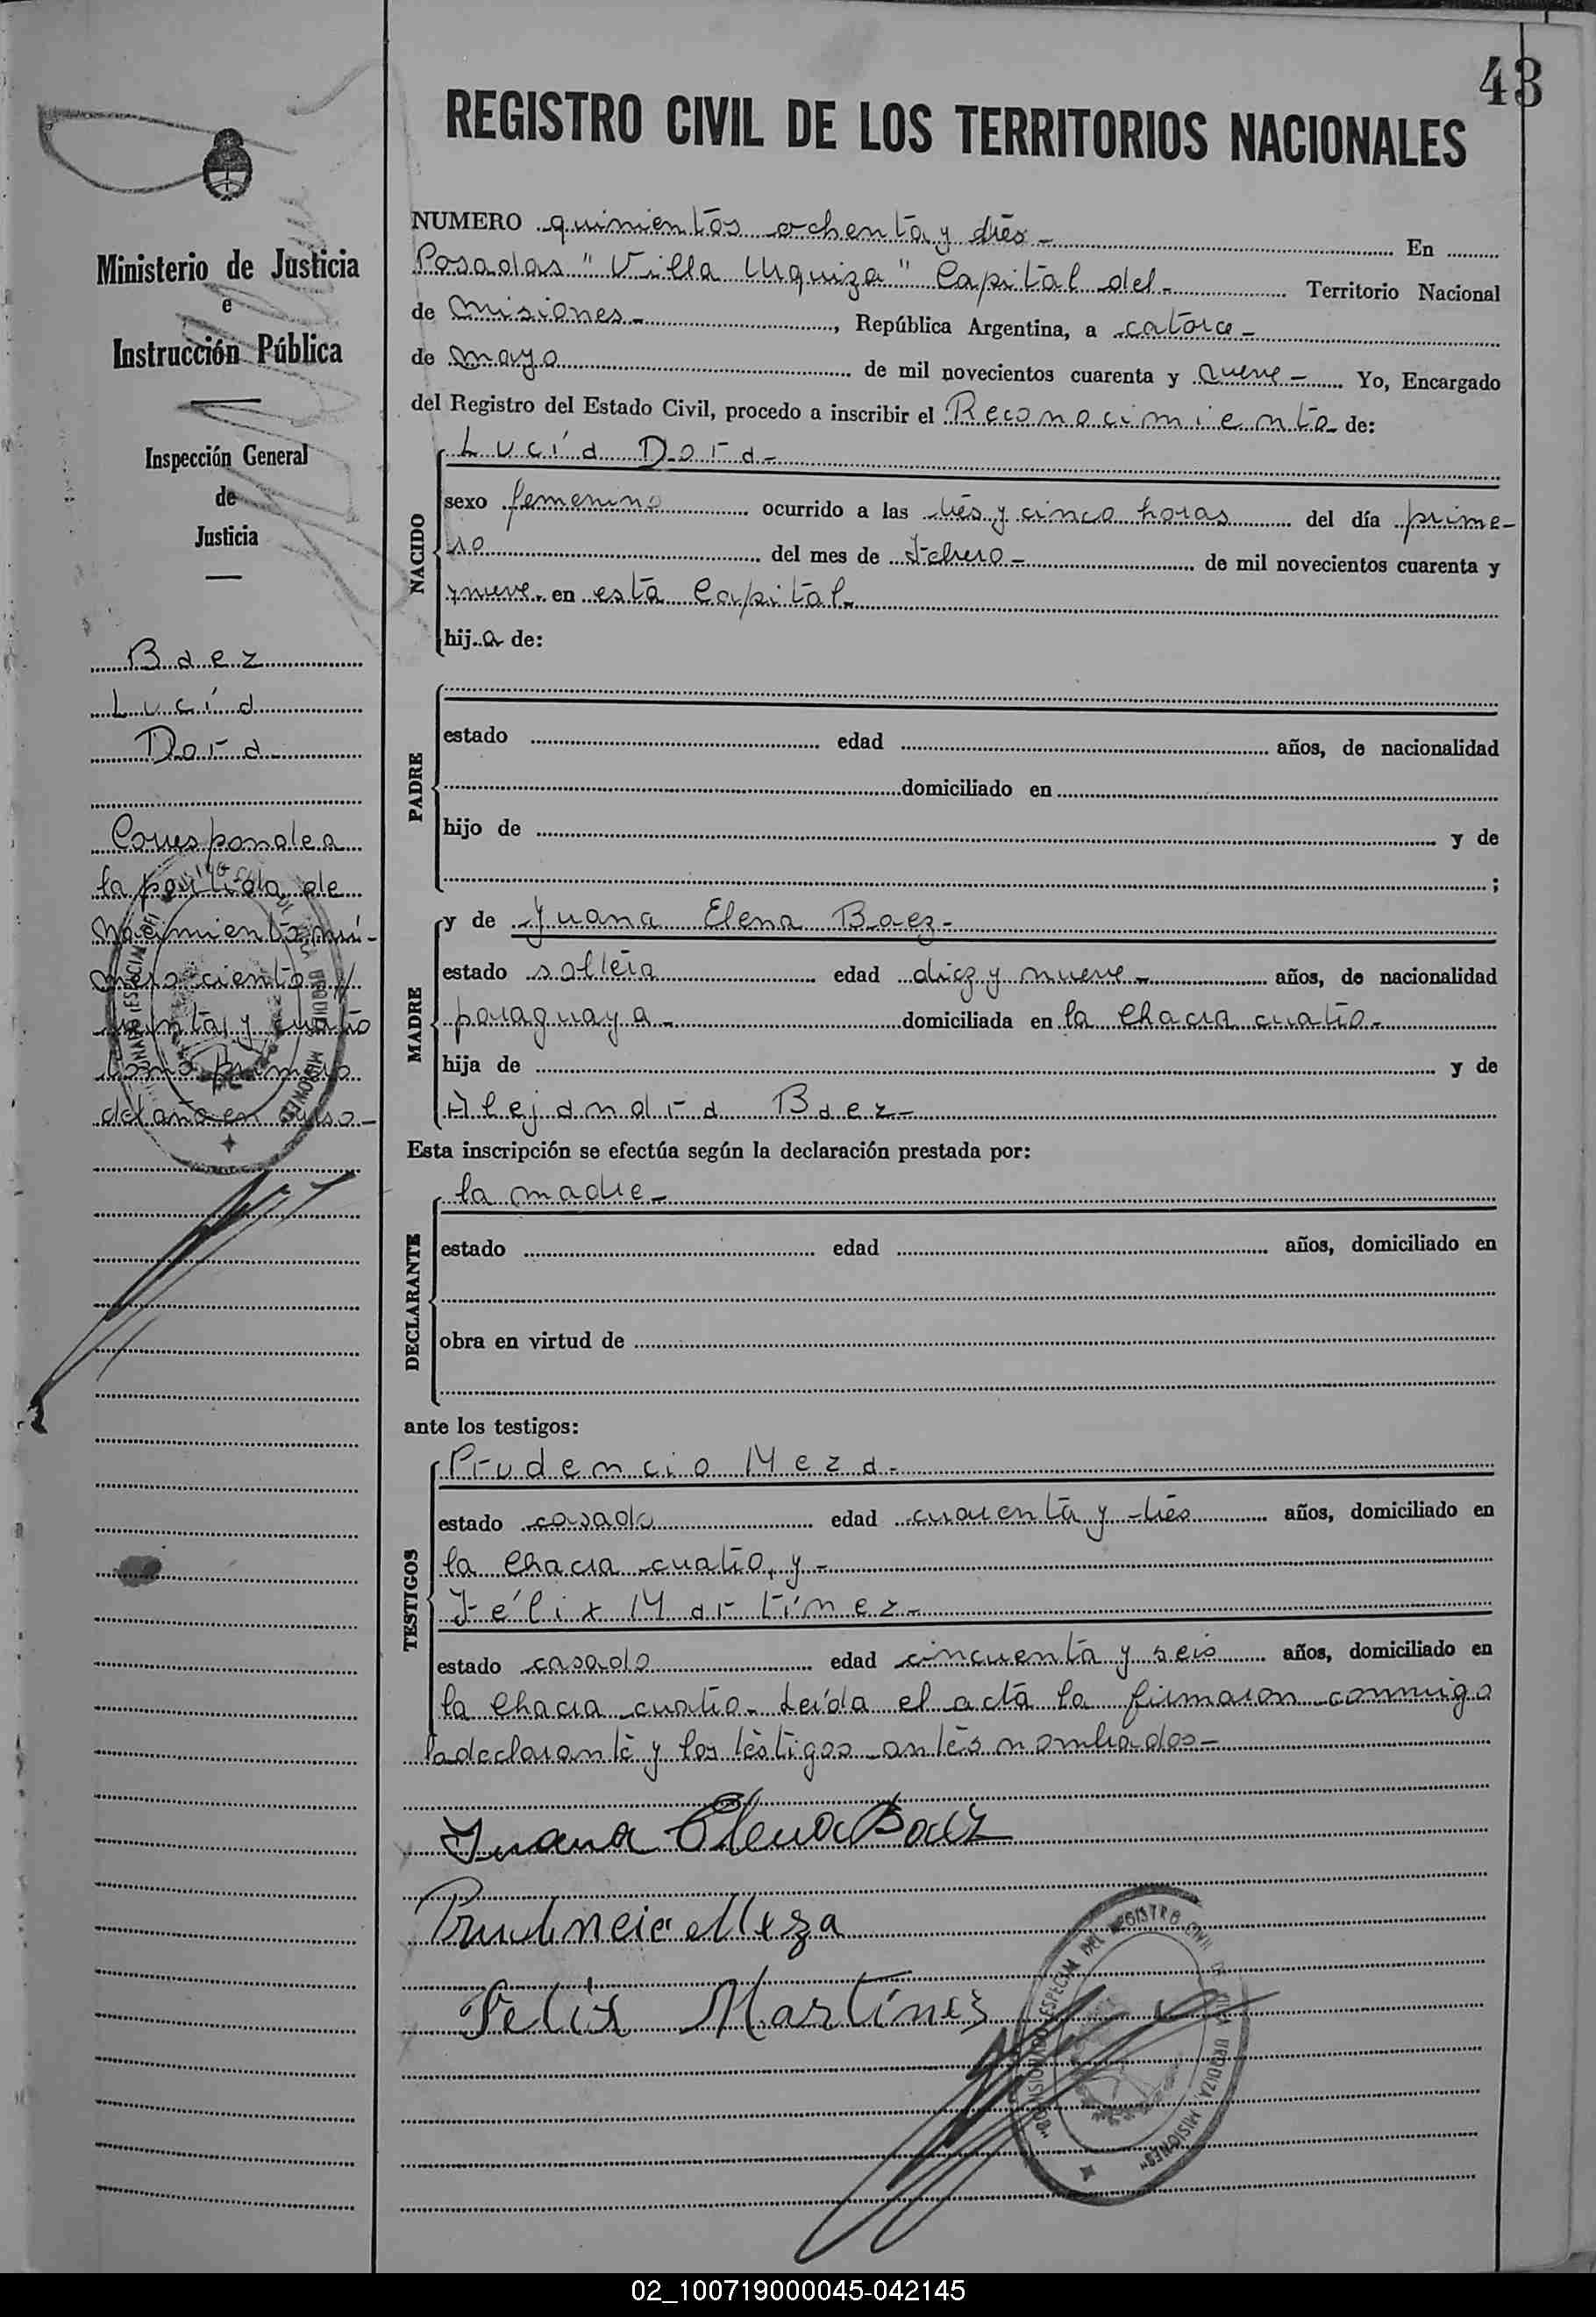 43
REGISTRO CIVIL DE LOS TERRITORIOS NACIONALES
Ministerio de Justicia
e
Instrucción Pública
Inspección General
de
Justicia
Baez
Lucía
Dora
Corresponde a
la partida de
nacimiento nú-
mero ciento
y cuatro
tomo primero
del año en curso-
NUMERO quinientos ochenta y tres- En
Posadas "Villa Urquiza" Capital del- Territorio Nacional
de Misiones-, República Argentina, a catorce-
de mayo de mil novecientos cuarenta y nueve- Yo, Encargado
del Registro del Estado Civil, procedo a inscribir el Reconocimiento de:
Lucía Dora-
NACIDO
sexo femenino ocurrido a las tres y cinco horas del día prime-
ro del mes de Febrero- de mil novecientos cuarenta y
nueve- en esta Capital-
hija de:
PADRE
estado edad años, de nacionalidad
domiciliado en
hijo de y de
;
MADRE
y de Juana Elena Baez-
estado soltera edad diez y nueve- años, de nacionalidad
paraguaya- domiciliada en la chacra cuatro-
hija de y de
Alejandra Baez-
Esta inscripción se efectúa según la declaración prestada por:
la madre-
DECLARANTE
estado edad años, domiciliado en
obra en virtud de
ante los testigos:
TESTIGOS
Prudencio Meza-
estado casado edad cuarenta y tres años, domiciliado en
la chacra cuatro, y-
Félix Martínez-
estado casado edad cincuenta y seis años, domiciliado en
la chacra cuatro- Leída el acta la firmaron conmigo
la declarante y los testigos antes nombrados-
Juana Elena Baez
Prudencio Meza
Felix Martínez
COMISIONADO ESPECIAL DEL REGISTRO CIVIL DE VILLA URQUIZA, MISIONES
02_100719000045-042145